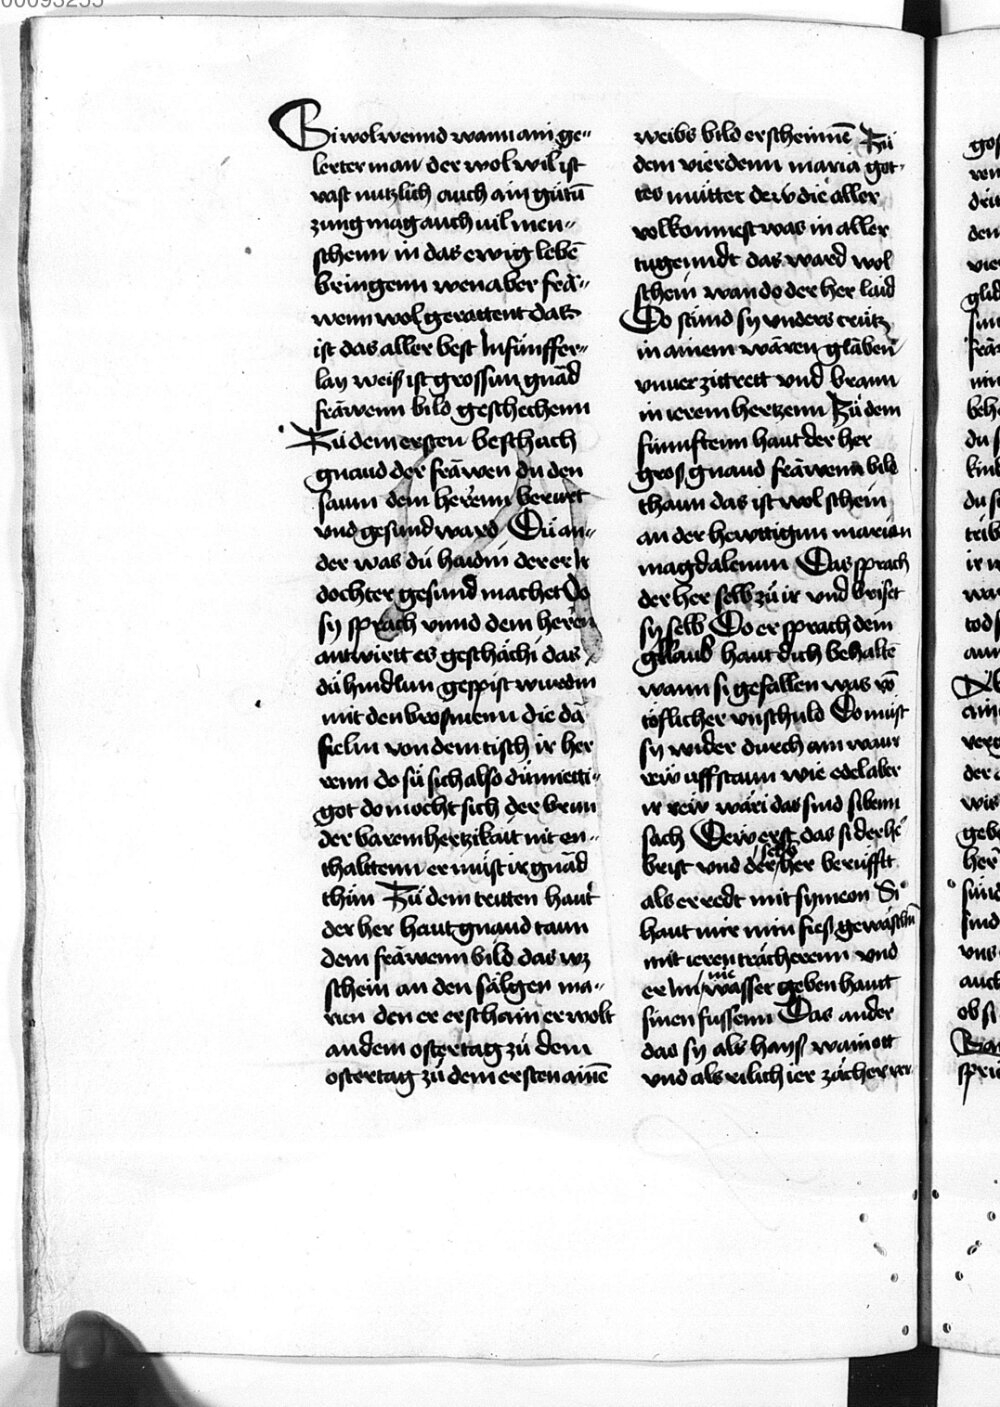 00093255
Si wol wennd wann ain ge„
lerter man der wol wil ist
vast nutzlich auch ain gůtū
zung mag auch uil men„
schenn in das ewig lebē
bringenn wen aber frä„
wenn wol gerattent das
ist das aller best In fünffer„
lay weiß ist grossun gnäd
fräwenn bild geschechenn
Zů dem ersten beschach
gnaud der fräwen du den
saum dem herenn berurt
vnd gesund ward Dü an„
der was dü haidni der er Ir
dochter gesund machet Do
sy sprach vnnd dem heren
antwirtt es geschächi das
dü hindlun gespist wurdin
mit den brosmenn die dä
fielin von dem tisch ir her
renn do sü sich also diemietti„
got do mocht sich der brun
der baremhertzikait nit en„
thalttenn er můst ir gnäd
thůn Zů dem tritten haut
der her haut gnaud taun
dem fräwenn bild das wz
schein an den sälgen ma„
rien den er erschain er wolt
an dem ostertag zů dem
ostertag zů dem ersten ainē
weibs bild erscheinnē Zů
dem vierdenn maria got„
tes můtter der v̈ die aller
volkomnest was in aller
tugenndt das ward wol
schein wan do der her laid
Do stůnd sy vnders crütz
in ainem wären glaben
vnuerzüttrett vnd brann
in irem hertzenn Zů dem
fünnftenn haut der her
gros gnaud fräwenn bild
thaun das ist wol schein
an der hewttigun marian
magdalenun Das sprach
der her selb zů ir vnd briset
sy selb Do er sprach dein
glaub haut dich behaltē
wann si gefallen was vō
töflicher vnschuld Do můst
sy wider durch ain waur
rew uffstaun wie edel aber
ir rew wäri das sind sibenn
sach Dew erst das si der hē
brist vnd der her selb berüfftt
als er redt mit symeon Si
haut mir min fieß gewäschn
mit ieren trächerenn vnd
er Im nie wasser geben hautt
sinen fussenn Das ander
das sy als hayß wainott
vnd als rilich ier zächer ver